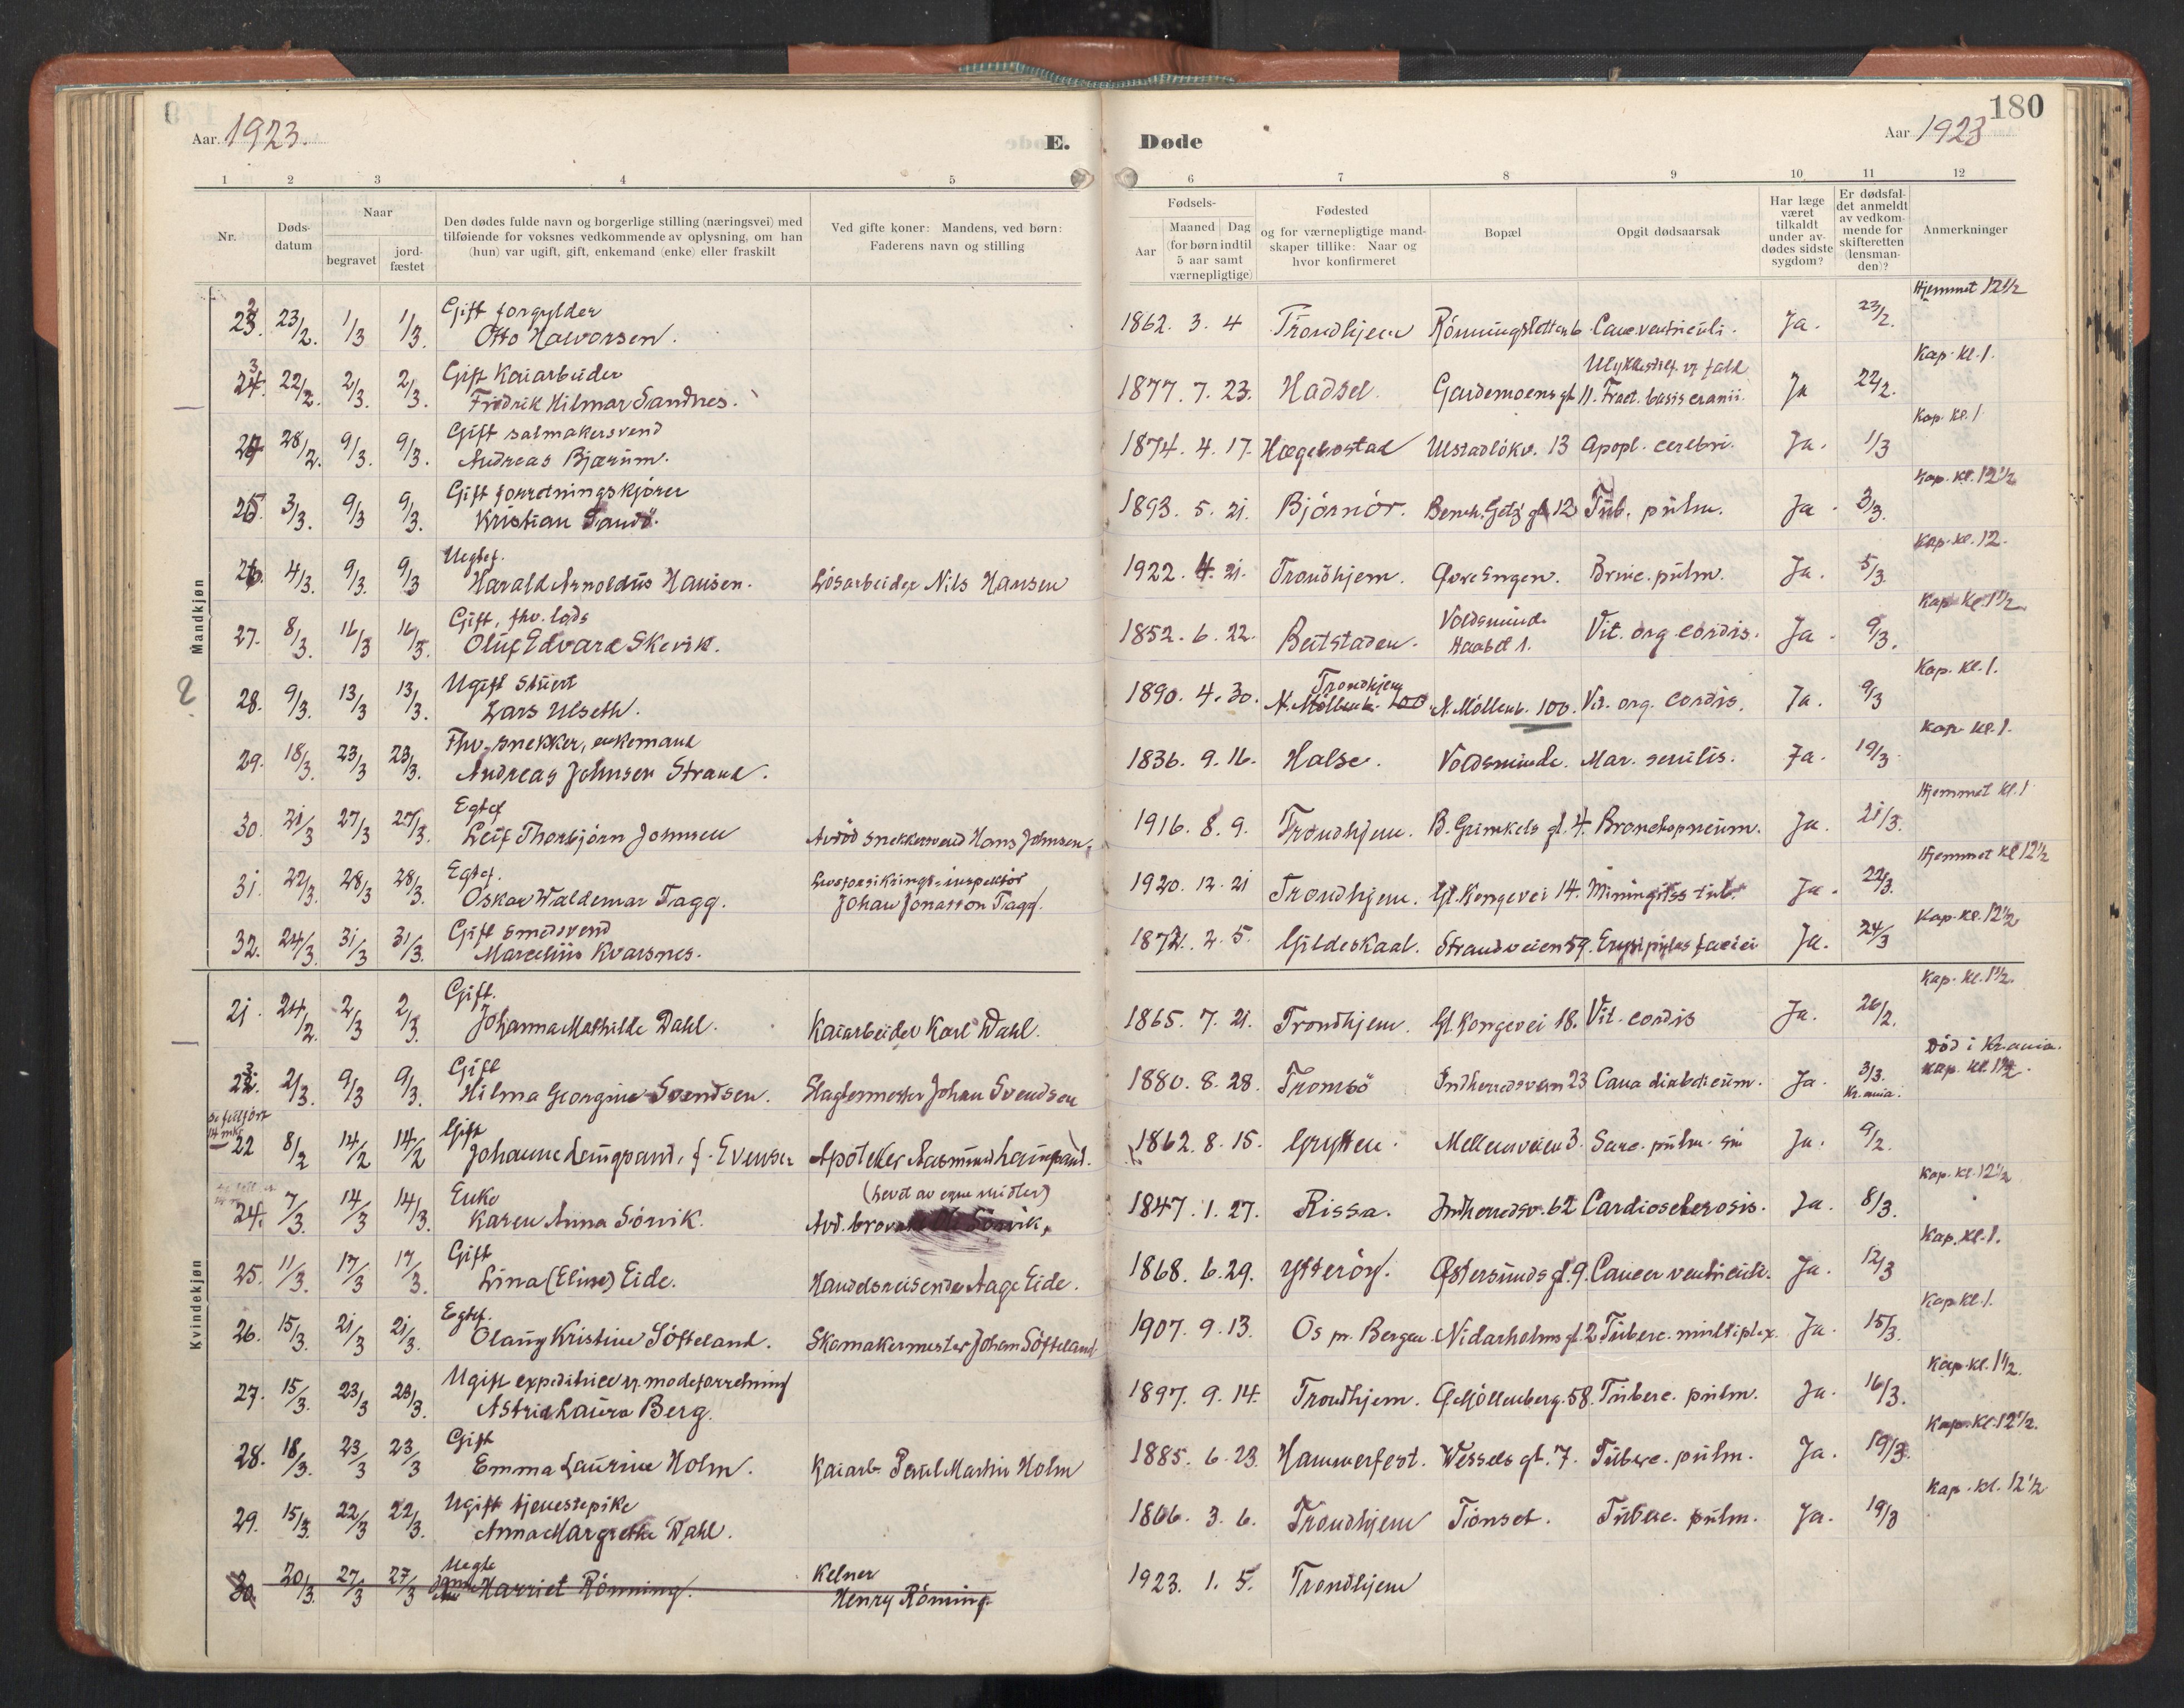 180
Aar 1923.
E. Døde
Aar 1923
1 2 3 4 5 6 7 8 9 10 11 12
Nr.
Døds-datum
Naar
begravet
jord-fæstet
Den dødes fulde navn og borgerlige stilling (næringsvei) med
tilføiende for voksnes vedkommende av oplysning, om han
(hun) var ugift, gift, enkemand (enke) eller fraskilt
Ved gifte koner: Mandens, ved børn:
Faderens navn og stilling
Fødsels-
Aar
Maaned Dag
(for børn indtil
5 aar samt
værnepligtige)
Fødested
og for værnepligtige mand-
skaper tillike: Naar og
hvor konfirmeret
Bopæl
Opgit dødsaarsak
Har læge
været
tilkaldt
under av-
dødes sidste
sygdom?
Er dødsfal-
det anmeldt
av vedkom-
mende for
skifteretten
(lensman-
den)?
Anmerkninger
Mandkjøn
Hjemmet 12 1/2
Gift forgylder
23. 23/2. 1/3 1/3. Otto Halvorsen. 1862. 3. 4 Trondhjem Rönningsletten 6 Canc. ventriculi. Ja. 23/2.
Kap. kl. 1.
Gift Kaiarbeider
24. 22/2. 2/3. 2/3. Fredrik Hilmar Sandnes. 1877. 7. 23. Hadsel Gardemoens gt 11. Fract. basis cranii. Ja 22/2.
Kap. kl. 1
Gift salmakersvend
24 28/2. 9/3. 9/3. Andreas Bjærum. 1874. 4. 17. Hægebostad Ulstadlökv. 13 Apopl. cerebri. Ja. 1/3
Kap. kl. 12 1/2
Gift forretningskjører
25. 3/3. 9/3 9/3. Kristian Sandö. 1893. 5. 21. Björnör. 12 Tub. pulm. Ja. 3/3.
Kap. kl. 12.
Uegtef.
26. 4/3. 9/3. 9/3 Harald Arnoldus Hansen. Lösarbeider Nils Hansen 1922. 4. 21. Trondhjem. Øvre Engen. pulm. Ja. 5/3.
Kap. kl. 1 1/2.
Gift, fhv. lods Voldsminde
27. 8/3. 16/3 16/3. Oluf Edvard Skevik. 1852. 6. 22. Beitstaden. Haabet 1. Vit. org. cordis. Ja. 9/3.
Kap. kl. 1.
Ugift stuert Trondhjem
2 28. 9/3. 13/3 13/3. Lars Ulseth. 1890. 4. 30. N. Möllenb. 100 N. Möllenb. 100. Vit. org. cordis. Ja. 9/3
Kap. kl. 1.
Fhv. snekker, enkemand
29. 18/3. 23/3 23/3. Andreas Johnsen Strand. 1836. 9. 16. Halse. Voldsminde. Mar. senilis. Ja. 19/3
Hjemmet kl. 1
Egtef
30. 21/3 27/3 27/3. Leif Thorbjörn Johnsen Avdöd snekkersvend Hans Johnsen. 1916. 8. 9. Trondhjem. B. Grimkels gt. 4. Bronchopneum. Ja. 21/3.
Hjemmet kl 12 1/2
Egtef. Livsforsikrings-inspektör
31. 22/3. 28/3 28/3. Oskar Waldemar Tagg. Johan Jonasson Tagg. 1920. 12. 21 Trondhjem. Gl. Kongevei 14. Miningitis tub. Ja. 22/3.
Kap. kl. 12 1/2
Gift smedsvend
32. 24/3. 31/3 31/3. Marcelius Kvarsnes. 1872. 2. 5. Gildeskaal. Strandveien 59. Erysipelas faciei Ja. 24/3
Kvindekjøn
Kap. kl. 1 1/2.
Gift.
21. 24/2. 2/3 2/3. Johanna Mathilde Dahl. Kaiarbeider Karl Dahl. 1865. 7. 21. Trondhjem. Gl. Kongevei 18. Vit. cordis Ja. 26/2.
Död i Kr.ania.
Kap. kl. 1 1/2.
Gift
22. 2/3. 9/3 9/3. Hilma Georgine Svendsen. Slagtermester Johan Svendsen 1880. 8. 28. Tromsö Indherredsveien 23 Coma diabeticum. Ja. 3/3. Kr.ania.
Gift
22 8/2 14/2 14/2 Johanne Laingpand, f. Evensen Apoteker Aasmund Laingpand. 1862. 8. 15. Grytten. Mellemveien 3. Sarc. pulm. sin Ja. 9/2.
Kap. kl. 12 1/2
Enke (Levet av egne midler)
24. 7/3. 14/3 14/3. Karen Anna Sörvik. Avd. Sörvik. 1847. 1. 27. Rissa. Indherredsv. 62 Cardiosclerosis. Ja. 8/3.
Kap. kl. 1.
Gift
25. 11/3. 17/3 17/3. Lina (Eline) Eide. Handelsreisende Aage Eide. 1868. 6. 29. Ytteröy. Østersunds gt. 9. Cancer ventriculi. Ja. 12/3
Kap. kl. 1.
Egtef.
26. 15/3. 21/3 21/3. Olaug Kristine Söfteland. Skomakermester Johan Söfteland 1907. 9. 13. Os pr. Bergen. Nidarholms gt. 2 Tuberc. multiplex. Ja. 15/3.
Kap. kl. 1 1/2.
Ugift expeditrice i modeforretning
27. 15/3. 23/3 23/3. Astrid Laura Berg. 1897. 9. 14. Trondhjem. Ø. Möllenberg. 58. Tuberc. pulm. Ja. 16/3.
Kap. kl. 12 1/2.
Gift
28. 18/3. 23/3 23/3 Emma Laurine Holm. Kaiarb. Paul Martin Holm 1885. 6. 23. Hammerfest. Wessels gt. 7. Tuberc. pulm. Ja. 19/3.
Kap. kl. 12 1/2
Ugift tjenestepike
29. 15/3. 22/3 22/3. Anna Margrethe Dahl. 1866. 3. 6. Trondhjem Tönset. Tuberc. pulm. Ja. 19/3
Uegte Kelner
30. 20/3. 27/3 27/3 Harriet Rönning. Henry Rönning. 1923. 1. 5. Trondhjem